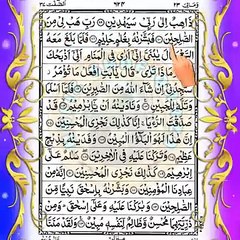 وَمَالِیَ ٢٣ الصّٰٓفّٰت ٣٧
ذَاهِبٌ اِلٰى رَبِّىْ سَيَهْدِيْنِ رَبِّ هَبْ لِىْ مِنَ
الصّٰلِحِيْنَ فَبَشَّرْنٰهُ بِغُلٰمٍ حَلِيْمٍ فَلَمَّا بَلَغَ مَعَهُ
السَّعْىَ قَالَ يٰبُنَىَّ اِنِّىْۤ اَرٰى فِى الْمَنَامِ اَنِّىْۤ اَذْبَحُكَ
فَانْظُرْ مَاذَا تَرٰى قَالَ يٰۤاَبَتِ افْعَلْ مَا تُؤْمَرُ
سَتَجِدُنِىْۤ اِنْ شَآءَ اللّٰهُ مِنَ الصّٰبِرِيْنَ فَلَمَّاۤ اَسْلَمَا
وَتَلَّهٗ لِلْجَبِيْنِ وَنَادَيْنٰهُ اَنْ يّٰۤاِبْرٰهِيْمُ قَدْ
صَدَّقْتَ الرُّءْيَا اِنَّا كَذٰلِكَ نَجْزِى الْمُحْسِنِيْنَ
اِنَّ هٰذَا لَهُوَ الْبَلٰٓؤُا الْمُبِيْنُ وَفَدَيْنٰهُ بِذِبْحٍ
عَظِيْمٍ وَتَرَكْنَا عَلَيْهِ فِى الْاٰخِرِيْنَ سَلٰمٌ عَلٰٓى
اِبْرٰهِيْمَ كَذٰلِكَ نَجْزِى الْمُحْسِنِيْنَ اِنَّهٗ مِنْ
عِبَادِنَا الْمُؤْمِنِيْنَ وَبَشَّرْنٰهُ بِاِسْحٰقَ نَبِيًّا مِّنَ
الصّٰلِحِيْنَ وَبٰرَكْنَا عَلَيْهِ وَعَلٰٓى اِسْحٰقَ وَمِنْ
ذُرِّيَّتِهِمَا مُحْسِنٌ وَّظَالِمٌ لِّنَفْسِهٖ مُبِيْنٌ وَلَقَدْ مَنَنَّا